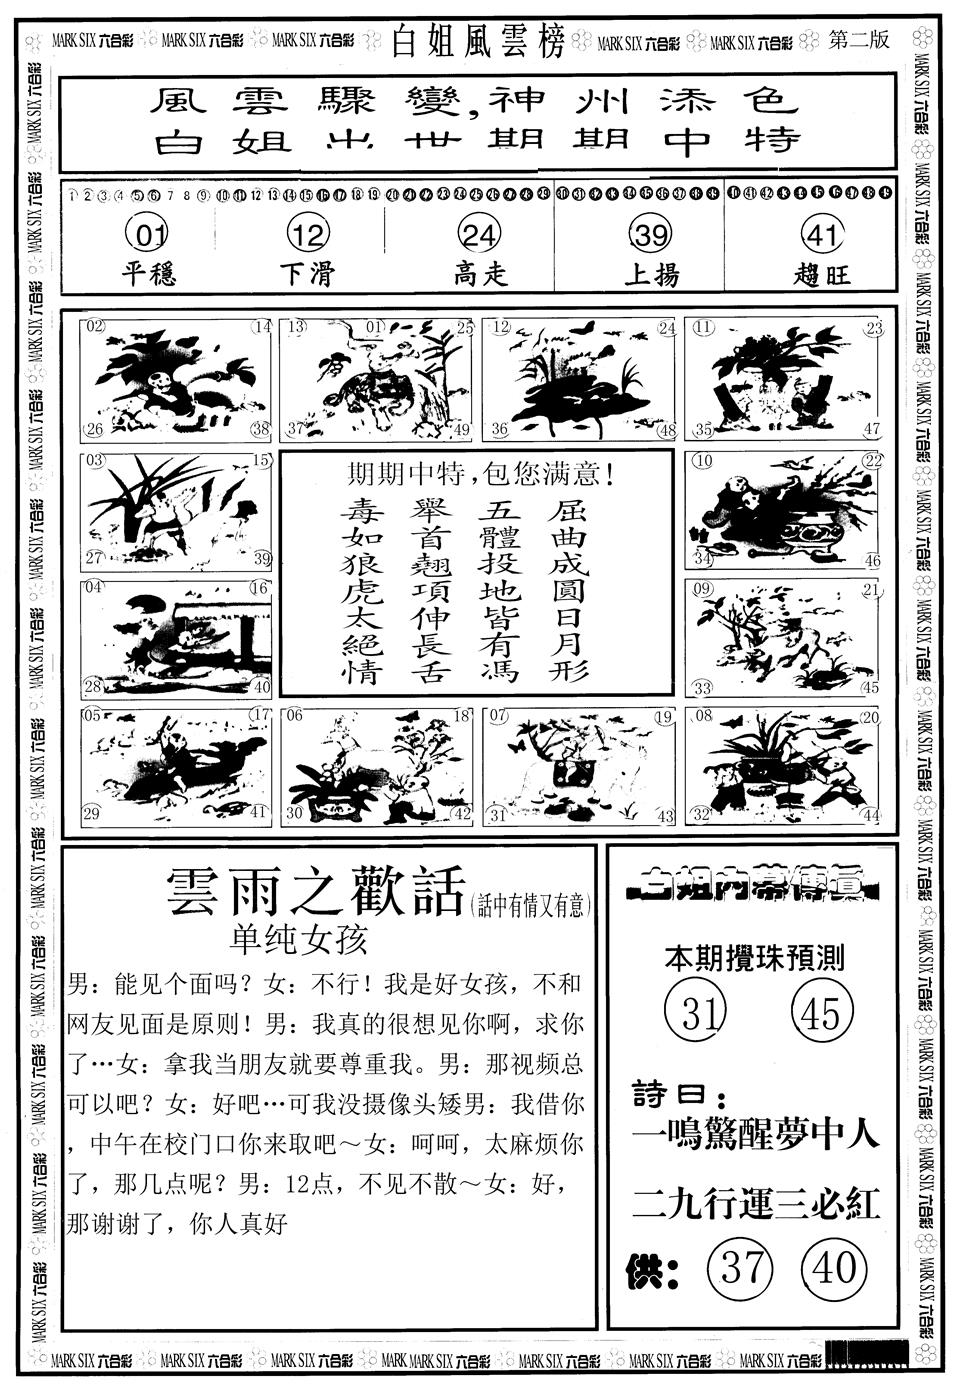 MARK SIX 六合彩 MARK SIX 六合彩 MARK SIX 六合彩 白姐風雲榜 MARK SIX 六合彩 MARK SIX 六合彩 第二版
風雲驟變,神州添色
白姐出世期期中特
1 2 3 4 5 6 7 8 9 10 11 12 13 14 15 16 17 18 19 20 21 22 23 24 25 26 27 28 29 30 31 32 33 34 35 36 37 38 39 40 41 42 43 44 45 46 47 48 49
01 12 24 39 41
平穩 下滑 高走 上揚 趨旺
02 14 13 01 25 12 24 11 23
26 38 37 49 36 48 35 47
03 15
27 39
04 16
28 40
期期中特,包您满意!
屈曲成圓日月形
五體投地皆有馮
舉首翹項伸長舌
毒如狼虎太絕情
10 22
34 46
09 21
33 45
05 17 06 18 07 19 08 20
29 41 30 42 31 43 32 44
雲雨之歡話(話中有情又有意)
单纯女孩
男：能见个面吗？女：不行！我是好女孩，不和
网友见面是原则！男：我真的很想见你啊，求你
了…女：拿我当朋友就要尊重我。男：那视频总
可以吧？女：好吧…可我没摄像头矮男：我借你
，中午在校门口你来取吧～女：呵呵，太麻烦你
了，那几点呢？男：12点，不见不散～女：好，
那谢谢了，你人真好
白姐内幕傳真
本期攪珠預測
31 45
詩曰：
一鳴驚醒夢中人
二九行運三必紅
供：37 40
MARK SIX 六合彩 MARK SIX 六合彩 MARK SIX 六合彩 MARK MARK SIX 六合彩 MARK SIX 六合彩 MARK SIX 六合彩 MARK SIX 六合彩